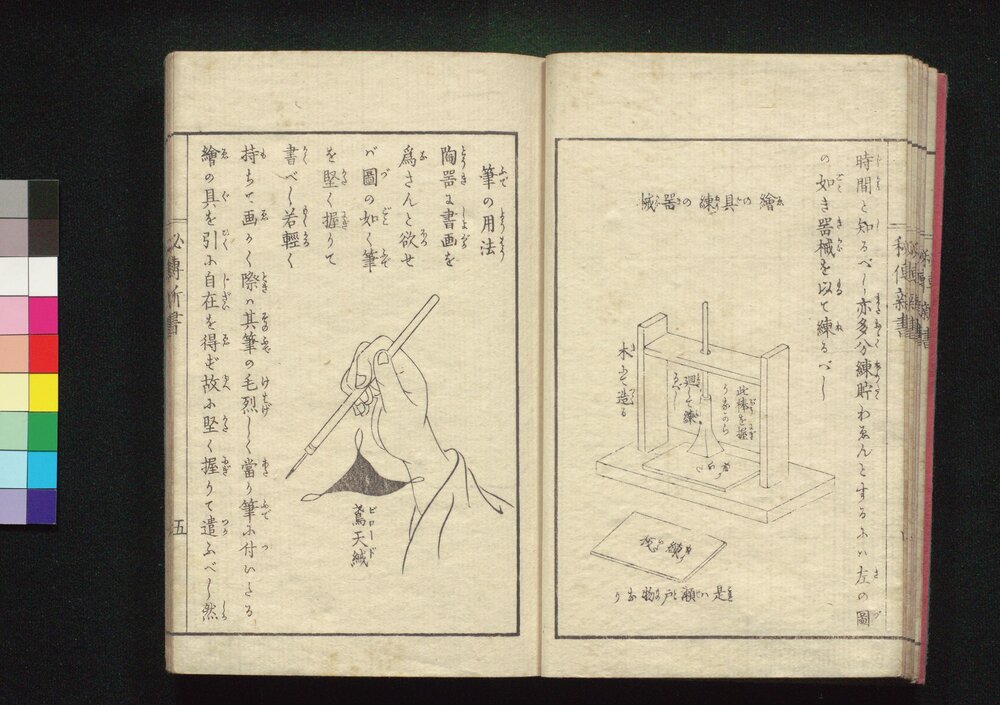 時間と知るべし亦多分練貯わゑんとするにハ左の圖
の如き器械を以て練るべし
繪の具練の器械
木にて造る
此棒を握
りながら
廻して練
るべし
練板
是ハ瀬戸物なり
秘傳新書
筆の用法
陶器に書画を
爲さんと欲せ
バ圖の如く筆
を堅く握りて
書べし若輕く
持ちて画かく際ハ其筆の毛烈しく當り筆に付いたる
繪の具を引に自在を得ず故に堅く握りて遣ふべし然
鳶天絨
ビロード
必傳新書
五